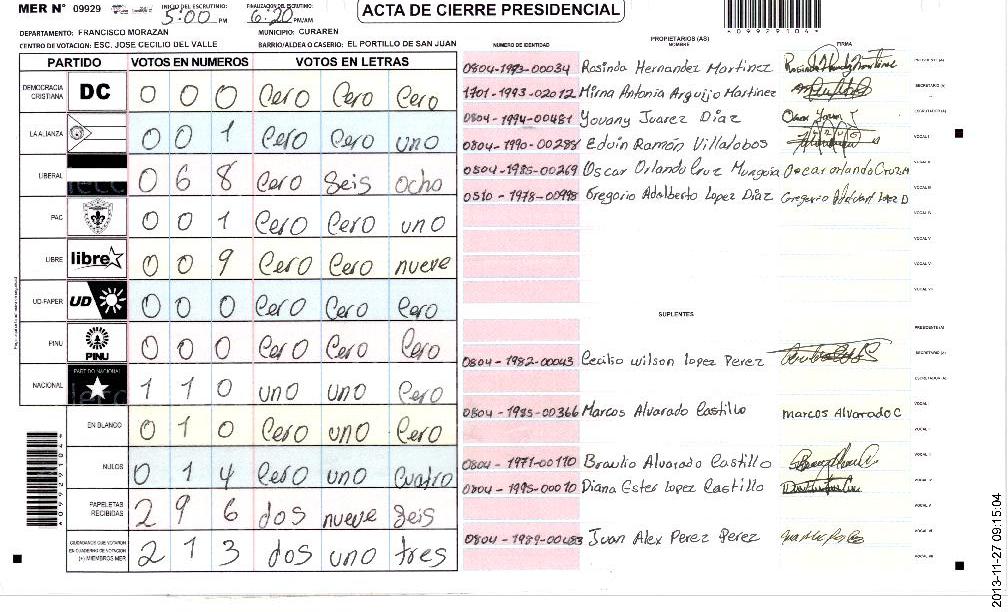 MER N° 09929
INICIO DEL ESCRUTINIO: 5:00 PM
FINALIZACION DEL ESCRUTINIO: 6:20 PM/AM
ACTA DE CIERRE PRESIDENCIAL
*09929104*
DEPARTAMENTO: FRANCISCO MORAZAN
MUNICIPIO: CURAREN
CENTRO DE VOTACION: ESC. JOSE CECILIO DEL VALLE
BARRIO/ALDEA O CASERIO: EL PORTILLO DE SAN JUAN
PARTIDO VOTOS EN NUMEROS VOTOS EN LETRAS
DEMOCRACIA CRISTIANA DC 0 0 0 Cero Cero Cero
LA ALIANZA 0 0 1 Cero Cero uno
LIBERAL 0 6 8 Cero Seis ocho
PAC 0 0 1 Cero Cero uno
LIBRE libre 0 0 9 Cero Cero nueve
UD-FAPER UD 0 0 0 Cero Cero Cero
PINU PINU 0 0 0 Cero Cero Cero
NACIONAL PARTIDO NACIONAL 1 1 0 uno uno Cero
EN BLANCO 0 1 0 Cero uno Cero
NULOS 0 1 4 Cero uno Cuatro
PAPELETAS RECIBIDAS 2 9 6 dos nueve Seis
CIUDADANOS QUE VOTARON EN CUADERNO DE VOTACION (+) MIEMBROS MER 2 1 3 dos uno tres
*09929104*
PROPIETARIOS (AS)
NUMERO DE IDENTIDAD NOMBRE FIRMA
0804-1993-00034 Rosinda Hernandez Martinez PRESIDENTE (A)
1701-1993-02012 Mirna Antonia Arguijo Martinez SECRETARIO (A)
0804-1994-00481 Yovany Juarez Diaz ESCRUTADOR (A)
0804-1990-00288 Eduin Ramón Villalobos VOCAL I
0804-1985-00269 Oscar Orlando Cruz Munguia Oscar Orlando Cruz M VOCAL II
0510-1978-00998 Gregorio Adalberto Lopez Diaz VOCAL III
VOCAL IV
VOCAL V
VOCAL VI
VOCAL VII
SUPLENTES
PRESIDENTE (A)
0804-1982-00043 Cecilio wilson lopez Perez SECRETARIO (A)
ESCRUTADOR (A)
0804-1985-00366 Marcos Alvarado Castillo marcos Alvarado C VOCAL
VOCAL
0804-1971-00110 Braulio Alvarado Castillo VOCAL
0804-1995-00070 Diana Ester Lopez Castillo VOCAL
VOCAL
0804-1989-00483 Juan Alex Perez Perez VOCAL
VOCAL
2013-11-27 09:15:04